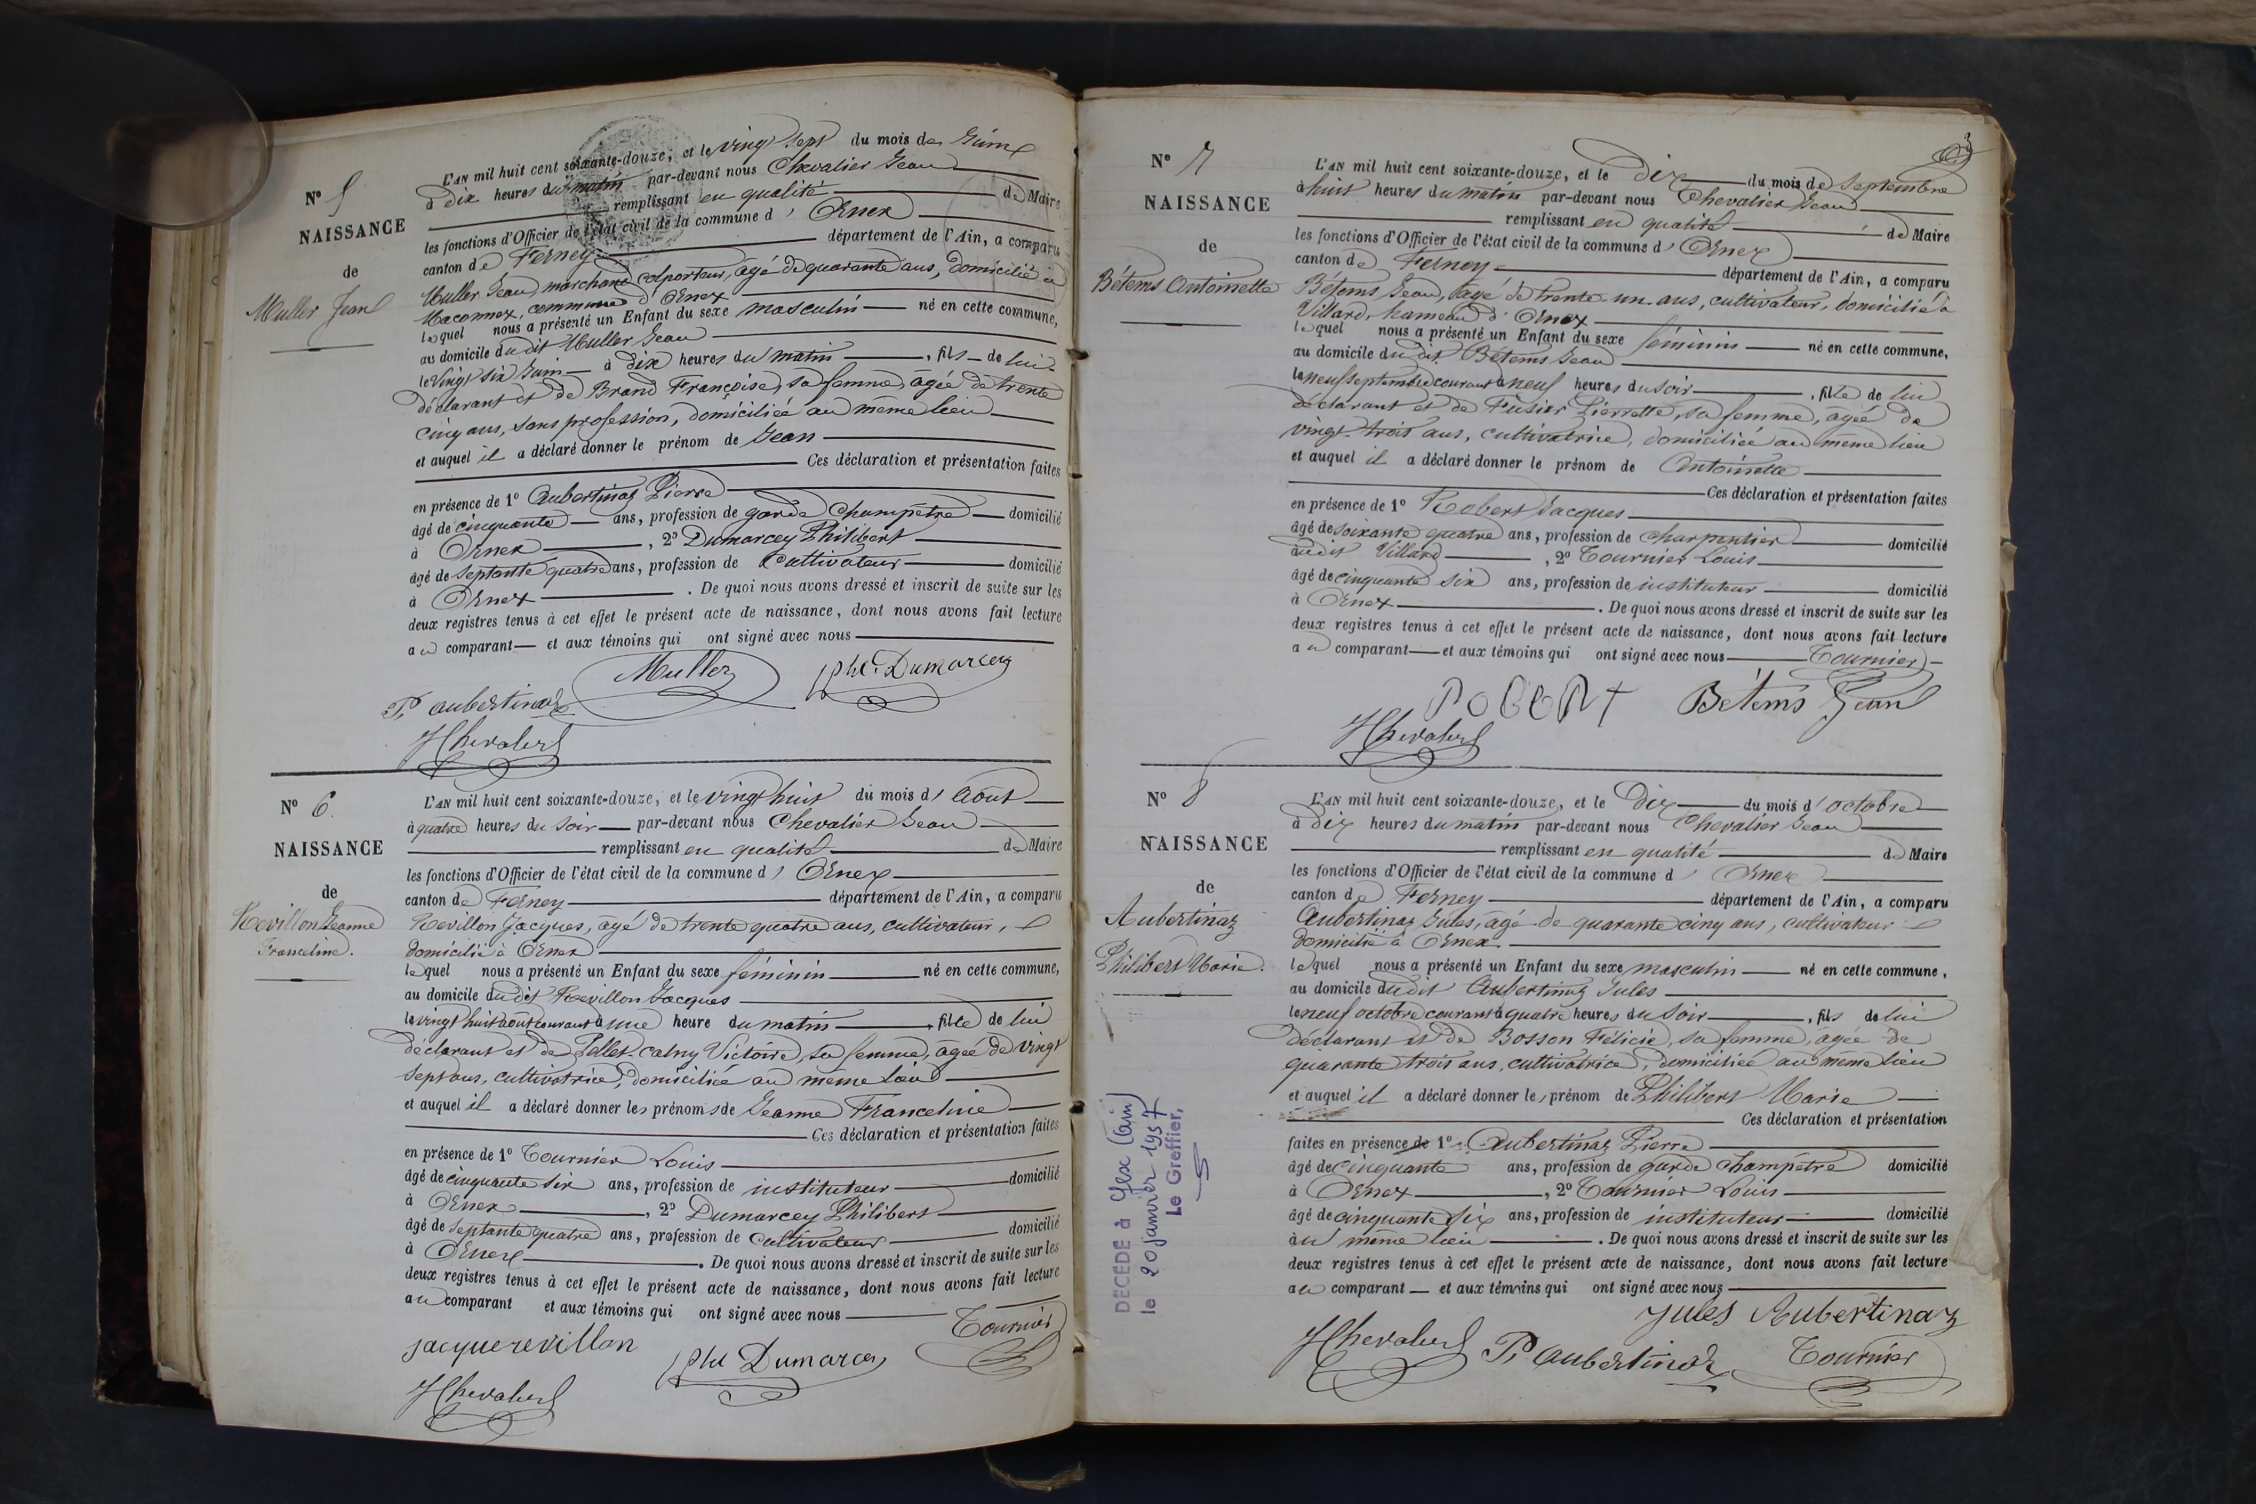 N° 5
NAISSANCE
de
Muller Jean
L'AN mil huit cent soixante-douze, et le vingt sept du mois de Juin
à dix heures du matin par-devant nous Chevalier Jean
remplissant en qualité de Maire
les fonctions d'Officier de l'état civil de la commune d' Ornex
canton de Ferney département de l'Ain, a comparu
Muller Jean, marchand colporteur, âgé de quarante ans, domicilié à
Maconnex, commune d'Ornex
lequel nous a présenté un Enfant du sexe masculin né en cette commune,
au domicile du dit Muller Jean
le vingt six Juin à dix heures du matin, fils de lui
déclarant et de Brand Françoise, sa femme, âgée de trente
cinq ans, sans profession, domiciliée au même lieu
et auquel il a déclaré donner le prénom de Jean
Ces déclaration et présentation faites
en présence de 1° Aubertinaz Pierre
âgé de cinquante ans, profession de garde champêtre domicilié
à Ornex, 2° Dumarcey Philibert
âgé de septante quatre ans, profession de cultivateur domicilié
à Ornex. De quoi nous avons dressé et inscrit de suite sur les
deux registres tenus à cet effet le présent acte de naissance, dont nous avons fait lecture
au comparant et aux témoins qui ont signé avec nous
Muller Pht Dumarcey
P. aubertinaz
J Chevalier
N° 6.
NAISSANCE
de
Revillon Jeanne
Franceline.
L'AN mil huit cent soixante-douze, et le vingt huit du mois d' Août
à quatre heures du soir par-devant nous Chevalier Jean
remplissant en qualité de Maire
les fonctions d'Officier de l'état civil de la commune d' Ornex
canton de Ferney département de l'Ain, a comparu
Revillon Jacques, âgé de trente quatre ans, cultivateur,
domicilié à Ornex
lequel nous a présenté un Enfant du sexe féminin né en cette commune,
au domicile du dit Revillon Jacques
le vingt huit août courant à une heure du matin, fille de lui
déclarant et de Pellet-Calny Victoire, sa femme, âgée de vingt
sept ans, cultivatrice, domiciliée au même lieu
et auquel il a déclaré donner les prénoms de Jeanne Franceline
Ces déclaration et présentation faites
en présence de 1° Tournier Louis
âgé de cinquante six ans, profession de instituteur domicilié
à Ornex, 2° Dumarcey Philibert
âgé de septante quatre ans, profession de cultivateur domicilié
à Ornex. De quoi nous avons dressé et inscrit de suite sur les
deux registres tenus à cet effet le présent acte de naissance, dont nous avons fait lecture
au comparant et aux témoins qui ont signé avec nous Tournier
jacque revillon Pht Dumarcey
J Chevalier
3
N° 7
NAISSANCE
de
Bétems Antoinette
L'AN mil huit cent soixante-douze, et le Dix du mois de Septembre
à huit heures du matin par-devant nous Chevalier Jean
remplissant en qualité de Maire
les fonctions d'Officier de l'état civil de la commune d' Ornex
canton de Ferney département de l'Ain, a comparu
Bétems Jean, âgé de trente-un ans, cultivateur, domicilié à
Villard, hameau d'Ornex
lequel nous a présenté un Enfant du sexe féminin né en cette commune,
au domicile du dit Bétems Jean
le neuf septembre courant à neuf heures du soir, fille de lui
déclarant et de Fusier Pierrette, sa femme, âgée de
vingt-trois ans, cultivatrice, domiciliée au même lieu
et auquel il a déclaré donner le prénom de Antoinette
Ces déclaration et présentation faites
en présence de 1° Robert Jacques
âgé de soixante quatre ans, profession de charpentier domicilié
audit Villard, 2° Tournier Louis
âgé de cinquante six ans, profession de instituteur domicilié
à Ornex. De quoi nous avons dressé et inscrit de suite sur les
deux registres tenus à cet effet le présent acte de naissance, dont nous avons fait lecture
au comparant et aux témoins qui ont signé avec nous Tournier
ROBERT Bétems Jean
J Chevalier
N° 8
NAISSANCE
de
Aubertinaz
Philibert Marie.
DÉCÉDÉ à Gex (Ain)
le 20 janvier 1957
Le Greffier,
L'AN mil huit cent soixante-douze, et le Dix du mois d' octobre
à Dix heures du matin par-devant nous Chevalier Jean
remplissant en qualité de Maire
les fonctions d'Officier de l'état civil de la commune d' Ornex
canton de Ferney département de l'Ain, a comparu
Aubertinaz Jules, âgé de quarante cinq ans, cultivateur
domicilié à Ornex.
lequel nous a présenté un Enfant du sexe masculin né en cette commune,
au domicile du dit Aubertinaz Jules
le neuf octobre courant à quatre heures du soir, fils de lui
déclarant et de Bosson Félicie, sa femme, âgée de
quarante trois ans, cultivatrice, domiciliée au même lieu
et auquel il a déclaré donner le prénom de Philibert Marie
Ces déclaration et présentation
faites en présence de 1° Aubertinaz Pierre
âgé de cinquante ans, profession de garde champêtre domicilié
à Ornex, 2° Tournier Louis
âgé de cinquante six ans, profession de instituteur domicilié
au même lieu. De quoi nous avons dressé et inscrit de suite sur les
deux registres tenus à cet effet le présent acte de naissance, dont nous avons fait lecture
au comparant et aux témoins qui ont signé avec nous
Jules Aubertinaz
J Chevalier P. aubertinaz Tournier